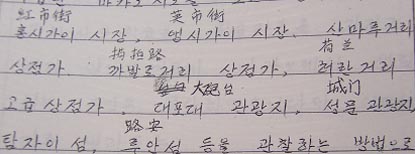 红市街 英市街
홍시가이 시장, 영시가이 시장, 산마루거리
荷兰
상점가 까발로거리 상점가, 허란거리
大砲台 城门
고급 상점가, 대포대 관광지, 성문 관광지,
路安
탁자이 섬, 루안섬 등을 관찰하는 방법으로